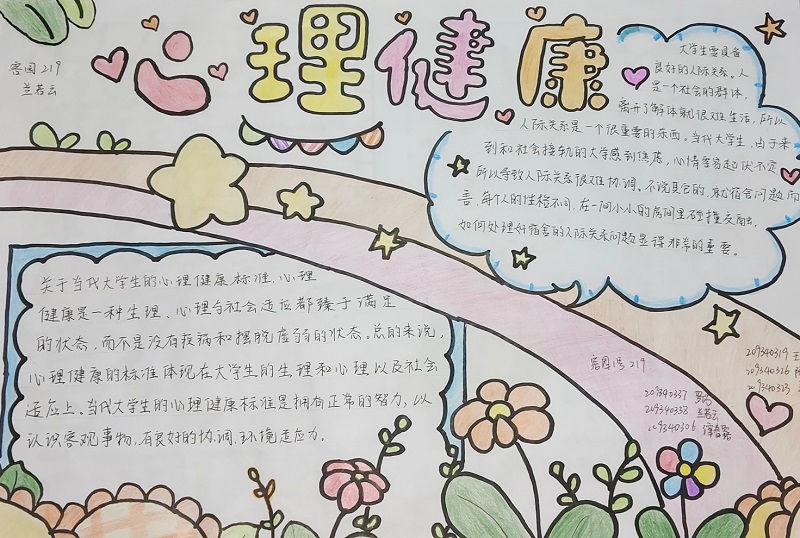 心理健康
客园219
兰若云
大学生需具备
良好的人际关系。人
是一个社会的群体，
离开了群体就很难生活，所以
人际关系是一个很重要的东西。当代大学生，由于来
到和社会接轨的大学感到焦虑，心情容易起伏不定
所以导致人际关系很难协调。不说其它的，就宿舍问题而
言，每个人的性格不同，在一间小小的房间里碰撞交融，
如何处理好宿舍的人际关系问题显得非常的重要。
关于当代大学生的心理健康标准，心理
健康是一种生理、心理与社会适应都臻于满足
的状态，而不是没有疾病和摆脱虚弱的状态。总的来说，
心理健康的标准体现在大学生的生理和心理以及社会
适应上。当代大学生的心理健康标准是拥有正常的智力，以
认识客观事物，有良好的协调，环境适应力。
客园1号219
209340337
209340338 兰若云
209340306
209340319 王
209340326
209340323